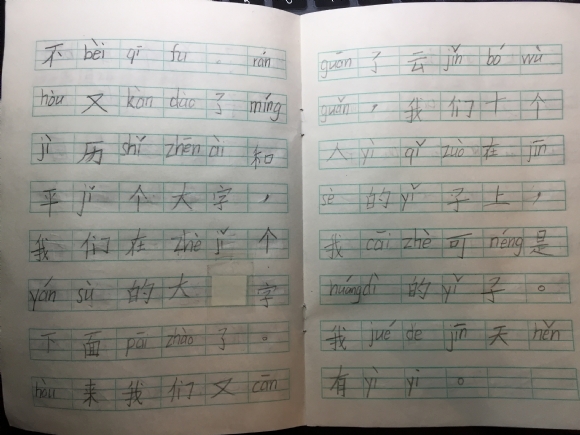 不 bèi qī fu . rán
hòu 又 kàn dào 了 míng
jì 历 shǐ zhēn ài 和
平 jǐ 个 大 字 ，
我 们 在 zhè jǐ 个
yán sù 的 大 字
下 面 pāi zhào 了 。
hòu 来 我 们 又 cān
guān 了 云 jǐn bó wù
guǎn ， 我 们 十 个
人 yì qǐ zuo 在 jīn
sè 的 yǐ 子 上 ，
我 cāi zhè 可 néng 是
huángdì 的 yǐ 子 。
我 jué de jīn 天 hěn
有 yì yi 。